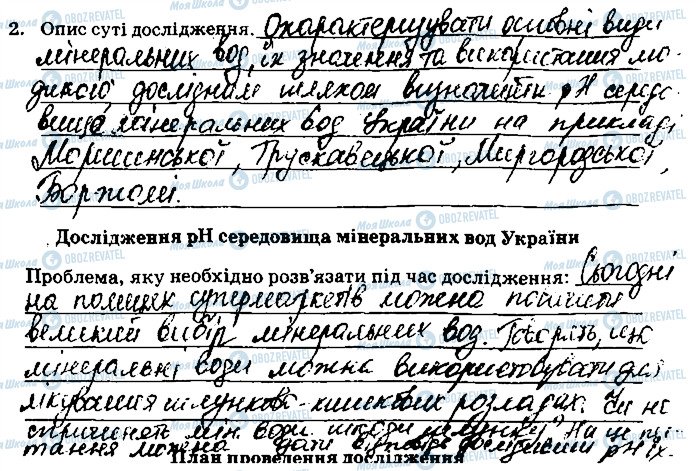 2. Опис суті дослідження. Охарактеризувати основні види
мінеральних вод, їх значення та використання ме-
дикою, дослідним шляхом визначити pH середо-
вища мінеральних вод України на прикладі
Моршинської, Трускавецької, Миргородської,
Боржомі.
Дослідження pH середовища мінеральних вод України
Проблема, яку необхідно розв'язати під час дослідження: Сьогодні
на полицях супермаркетів можна помітити
великий вибір мінеральних вод. Говорять, що
мінеральні води можна використовувати для
лікування шлунково-кишкових розладах. Чи не
спричинять мін. води шкоди шлунку? На це пи-
тання можна дати відповідь дослідивши pH їх.
План проведення дослідження